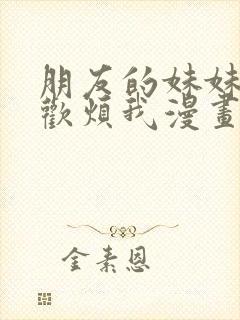 朋友的妹妹
歡煩我漫畫
金素恩